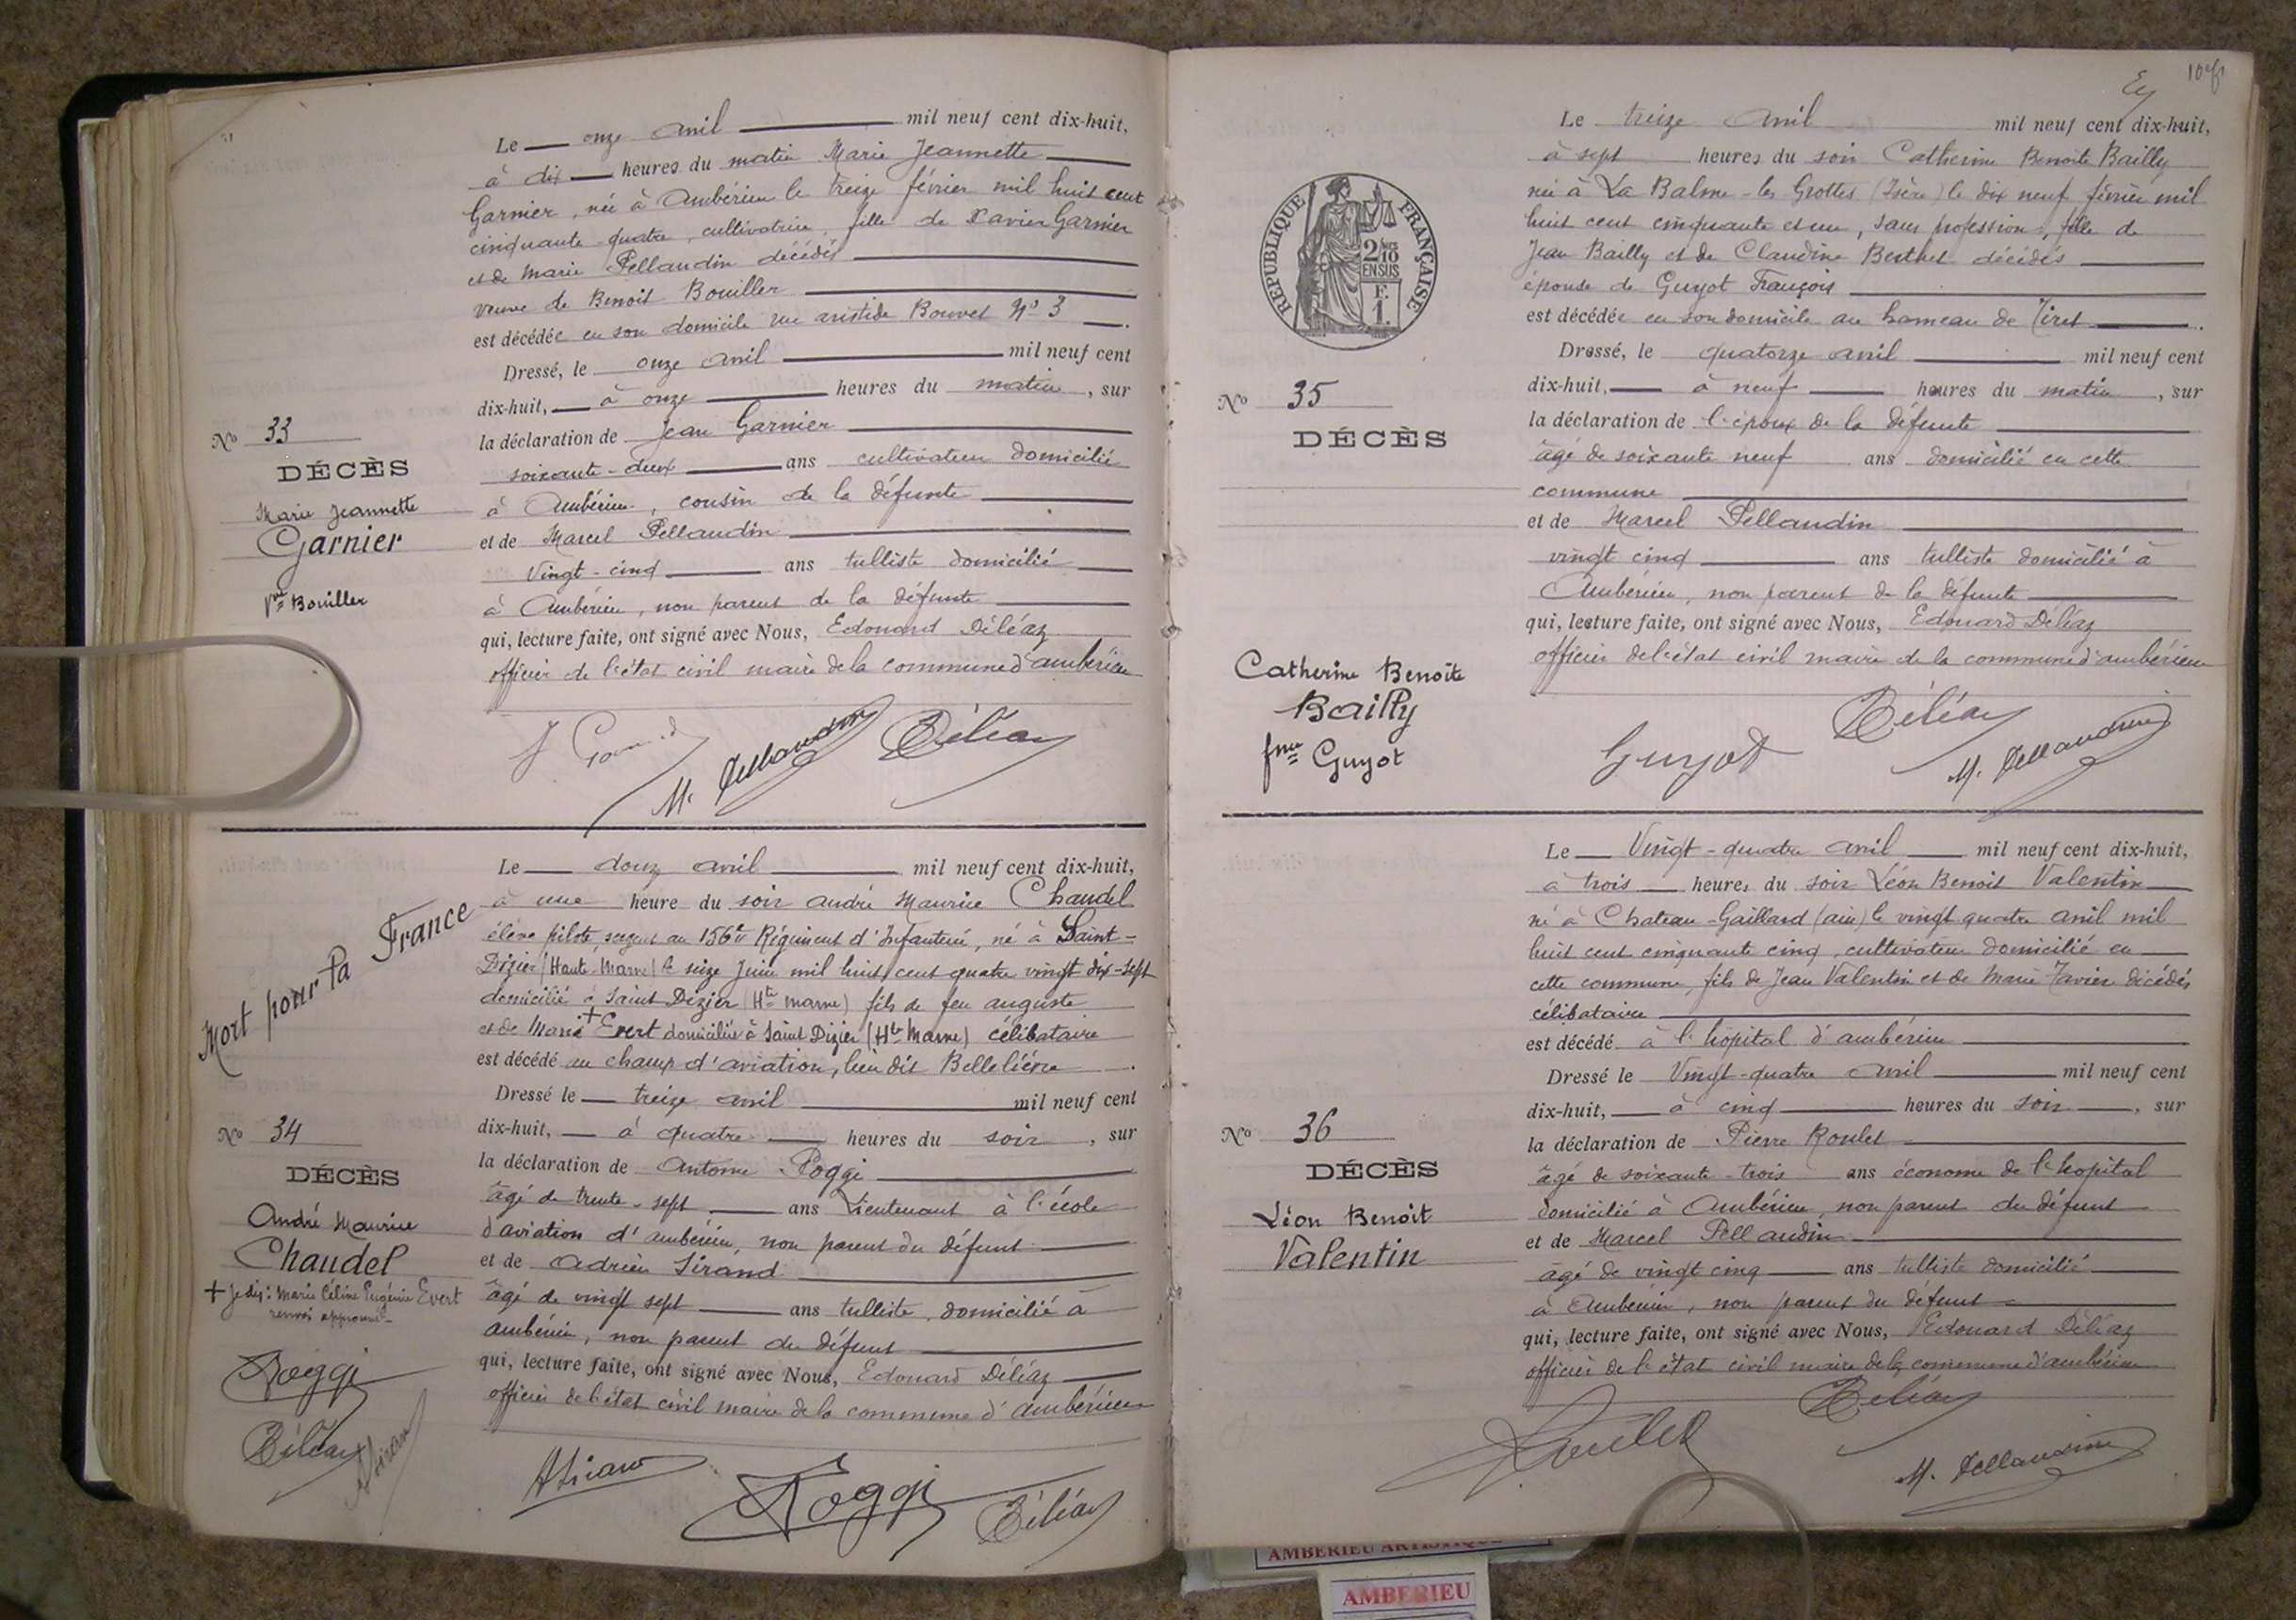 Le onze avril mil neuf cent dix-huit,
à dix heures du matin Marie Jeannette
Garnier, née à Ambérieu le treize février mil huit cent
cinquante-quatre, cultivatrice, fille de Xavier Garnier
et de Marie Pellaudin décédés
veuve de Benoit Bouiller
est décédée en son domicile rue aristide Bouvet No 3.
Dressé, le onze avril mil neuf cent
dix-huit, à onze heures du matin, sur
la déclaration de Jean Garnier
soixante-deux ans cultivateur domicilié
à Ambérieu, cousin de la défunte
et de Marcel Pellaudin
vingt-cinq ans tulliste domicilié
à Ambérieu, non parent de la défunte
qui, lecture faite, ont signé avec Nous, Edouard Déléaz
officier de l'état civil maire de la commune d'ambérieu
No 33
DÉCÈS
Marie Jeannette
Garnier
Vve Bouiller
M. Pellaudin Déléaz
Le douze avril mil neuf cent dix-huit,
à une heure du soir andré Maurice Chaudel
élève pilote, sergent au 156e Régiment d'Infanterie, né à Saint-
Dizier (Haute Marne) le seize Juin mil huit cent quatre vingt dix-sept
domicilié à Saint Dizier (Hte marne) fils de feu auguste
et de Marie + Evert domiciliée à Saint Dizier (Hte Marne) célibataire
est décédé au champ d'aviation, lieu dit Bellelièvre.
Dressé le treize avril mil neuf cent
dix-huit, à quatre heures du soir, sur
la déclaration de Antoine Poggi
âgé de trente-sept ans Lieutenant à l'école
d'aviation d'ambérieu, non parent du défunt
et de Adrien Sirand
âgé de vingt sept ans tulliste, domicilié à
ambérieu, non parent du défunt
qui, lecture faite, ont signé avec Nous, Edouard Déléaz
officier de l'état civil maire de la commune d'ambérieu
Mort pour la France
No 34
DÉCÈS
André Maurice
Chaudel
+ Je dis: Marie Céline Eugénie Evert
renvoi approuvé
Poggi
Déléaz
ASirand
ASirand Poggi Déléaz
Le treize avril mil neuf cent dix-huit,
à sept heures du soir Catherine Benoite Bailly
née à La Balme-les Grottes (Isère) le dix neuf février mil
huit cent cinquante et un, sans profession, fille de
Jean Bailly et de Claudine Berthet décédés
épouse de Guyot François
est décédée en son domicile au hameau de Tiret.
Dressé, le quatorze avril mil neuf cent
dix-huit, à neuf heures du matin, sur
la déclaration de l'époux de la défunte
âgé de soixante neuf ans domicilié en cette
commune
et de Marcel Pellaudin
vingt cinq ans tulliste domicilié à
Ambérieu, non parent de la défunte
qui, lecture faite, ont signé avec Nous, Edouard Déléaz
officier de l'état civil maire de la commune d'ambérieu
RÉPUBLIQUE FRANÇAISE
2/10
EN SUS
F.
1.
No 35
DÉCÈS
Catherine Benoîte
Bailly
fme Guyot
Guyot Déléaz M. Pellaudin
Le Vingt-quatre avril mil neuf cent dix-huit,
à trois heures du soir Léon Benoit Valentin
né à Chateau-Gaillard (ain) le vingt quatre avril mil
huit cent cinquante cinq, cultivateur domicilié en
cette commune, fils de Jean Valentin et de Marie Tavier décédés
célibataire
est décédé à l'hôpital d'ambérieu
Dressé le Vingt-quatre avril mil neuf cent
dix-huit, à cinq heures du soir, sur
la déclaration de Pierre Roulet
âgé de soixante-trois ans économe de l'hopital
domicilié à Ambérieu, non parent du défunt
et de Marcel Pellaudin
âgé de vingt cinq ans tulliste domicilié
à Ambérieu, non parent du défunt
qui, lecture faite, ont signé avec Nous, Edouard Déléaz
officier de l'état civil maire de la commune d'ambérieu
No 36
DÉCÈS
Léon Benoit
Valentin
Roulet Déléaz
M. Pellaudin
AMBERIEU ARTISTIQUE
AMBERIEU